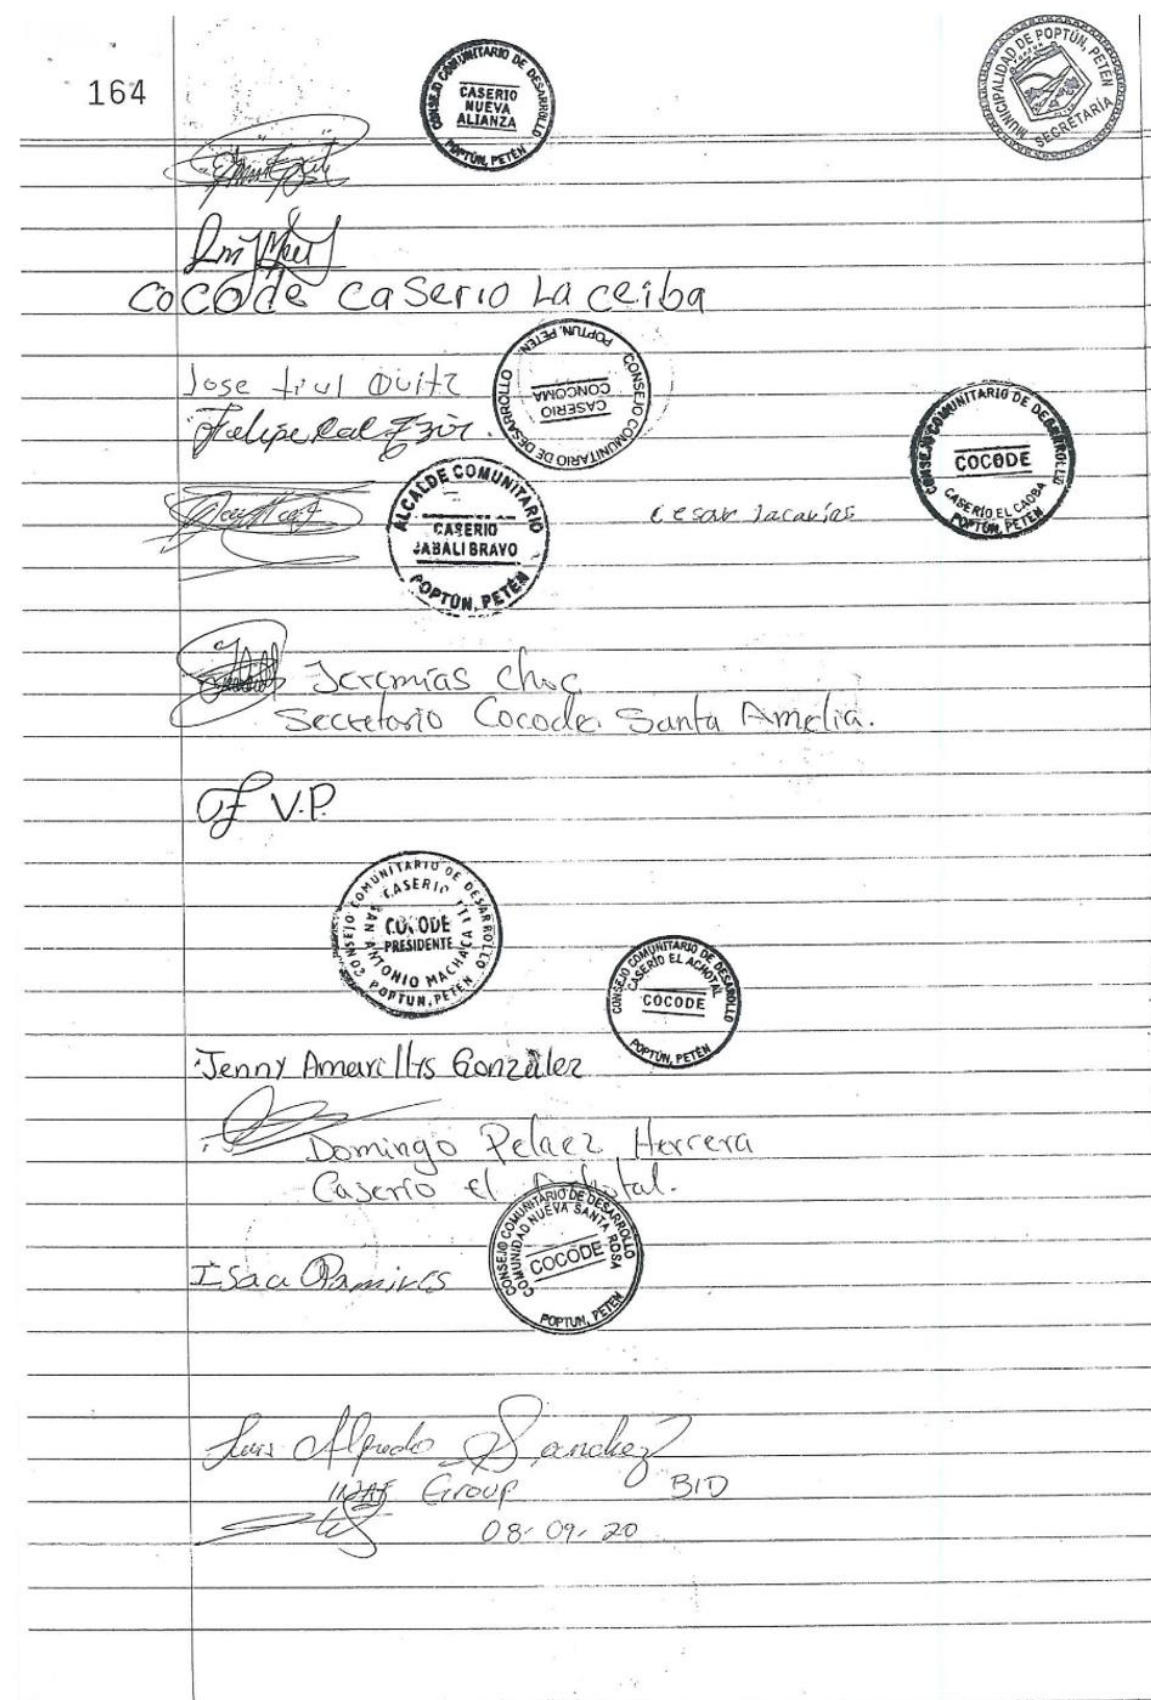 164
CONSEJO COMUNITARIO DE DESARROLLO
CASERIO
NUEVA
ALIANZA
POPTÚN, PETÉN
MUNICIPALIDAD DE POPTÚN, PETÉN
SECRETARÍA
COCODE CASERIO La ceiba
CONSEJO COMUNITARIO DE DESARROLLO
CASERIO
CONCOMA
POPTUN, PETEN.
Jose tiul Quitz
Felipe Cal
CONSEJO COMUNITARIO DE DESARROLLO
COCODE
CASERIO EL CAOBA
POPTÚN, PETÉN
ALCALDE COMUNITARIO
CASERIO
JABALI BRAVO
POPTÚN, PETÉN
Cesar Jacarias
Jeremías Choc
Secretario Cocode Santa Amelia.
V.P.
CONSEJO COMUNITARIO DE DESARROLLO
CASERIO
SAN ANTONIO MACHACA III
COCODE
PRESIDENTE
POPTUN, PETEN
CONSEJO COMUNITARIO DE DESAROLLO
CASERIO EL ACHOTAL
COCODE
POPTÚN, PETÉN
Jenny Amarillis González
Domingo Pelaez Herrera
Caserio el Achotal.
CONSEJO COMUNITARIO DE DESARROLLO
COMUNIDAD NUEVA SANTA ROSA
COCODE
POPTUN, PETEN
Isac Ramires
Luis Alfredo Sanchez
Group BID
08-09-20